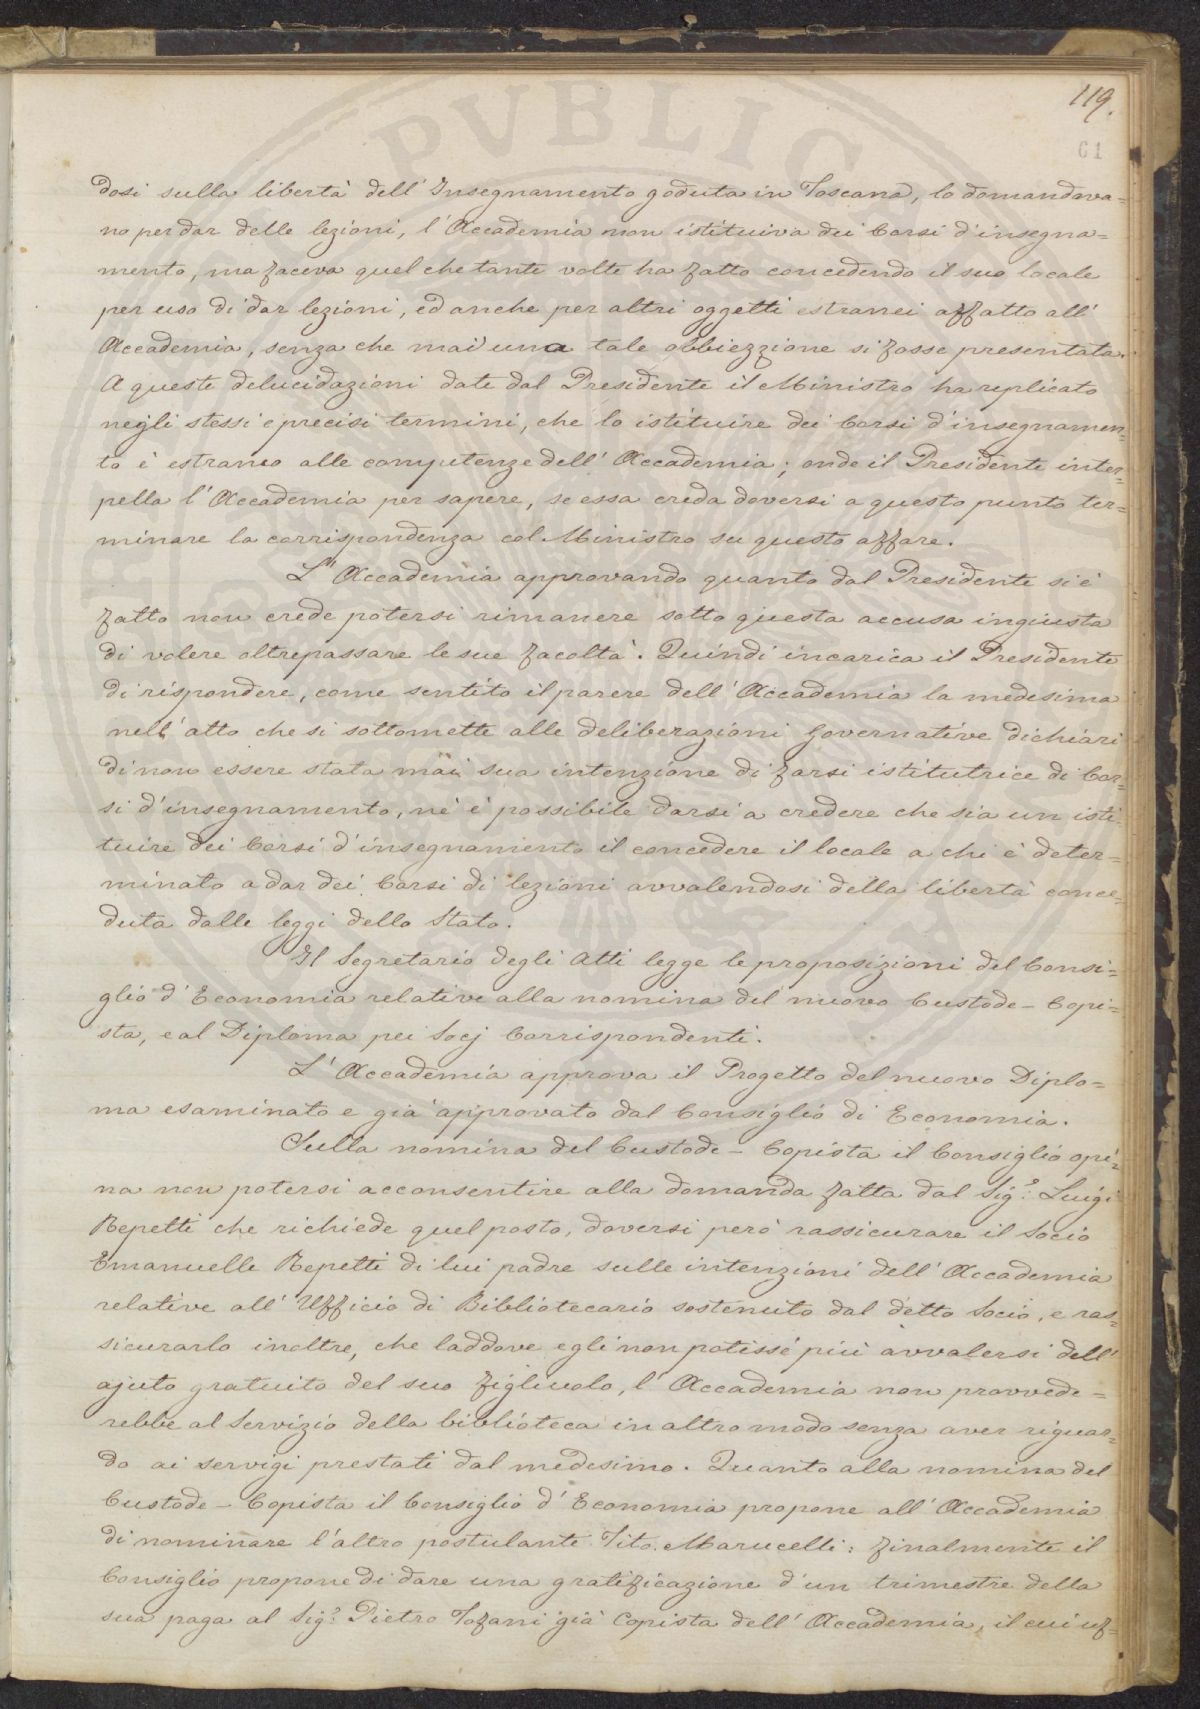 119.
61
dosi sulla libertà dell' Insegnamento goduta in Toscana, lo domandava=
no per dar delle lezioni, l' Accademia non istituiva dei Corsi d'insegna=
mento, ma faceva quel che tante volte ha fatto concedendo il suo locale
per uso di dar lezioni, ed anche per altri oggetti estranei affatto all'
Accademia, senza che mai una tale obbiezzione si fosse presentata.
A queste delucidazioni date dal Presidente il Ministro ha replicato
negli stessi e precisi termini, che lo istituire dei Corsi d'insegnamen=
to è estraneo alle competenze dell' Accademia; onde il Presidente inter=
pella l' Accademia per sapere, se essa creda doversi a questo punto ter=
minare la corrispondenza col Ministro su questo affare.
L' Accademia approvando quanto dal Presidente si è
fatto non crede potersi rimanere sotto questa accusa ingiusta
di volere oltrepassare le sue facoltà. Quindi incarica il Presidente
di rispondere, come sentito il parere dell' Accademia la medesima
nell' atto che si sottomette alle deliberazioni Governative dichiari
di non essere stata mai sua intenzione di farsi istitutrice di Cor=
si d'insegnamento, nè è possibile darsi a credere che sia un isti=
tuire dei Corsi d'insegnamento il concedere il locale a chi è deter=
minato a dar dei Corsi di lezioni avvalendosi della libertà conce=
duta dalle leggi dello Stato.
Il Segretario degli Atti legge le proposizioni del Consi=
glio d' Economia relative alla nomina del nuovo Custode - Copi=
sta, e al Diploma pei Socj Corrispondenti.
L' Accademia approva il Progetto del nuovo Diplo=
ma esaminato e già approvato dal Consiglio di Economia.
Sulla nomina del Custode - Copista il Consiglio opi=
na non potersi acconsentire alla domanda fatta dal Sig.r Luigi
Repetti che richiede quel posto, doversi però rassicurare il Socio
Emanuelle Repetti di lui padre sulle intenzioni dell' Accademia
relative all' Ufficio di Bibliotecario sostenuto dal detto Socio, e ras=
sicurarlo inoltre, che laddove egli non potesse più avvalersi dell'
ajuto gratuito del suo figliuolo, l' Accademia non provvede=
rebbe al Servizio della biblioteca in altro modo senza aver riguar=
do ai servigi prestati dal medesimo. Quanto alla nomina del
Custode - Copista il Consiglio d' Economia propone all' Accademia
di nominare l'altro postulante Tito Marucelli: finalmente il
Consiglio propone di dare una gratificazione d'un trimestre della
sua paga al Sig.r Pietro Tofani già Copista dell' Accademia, il cui uf=